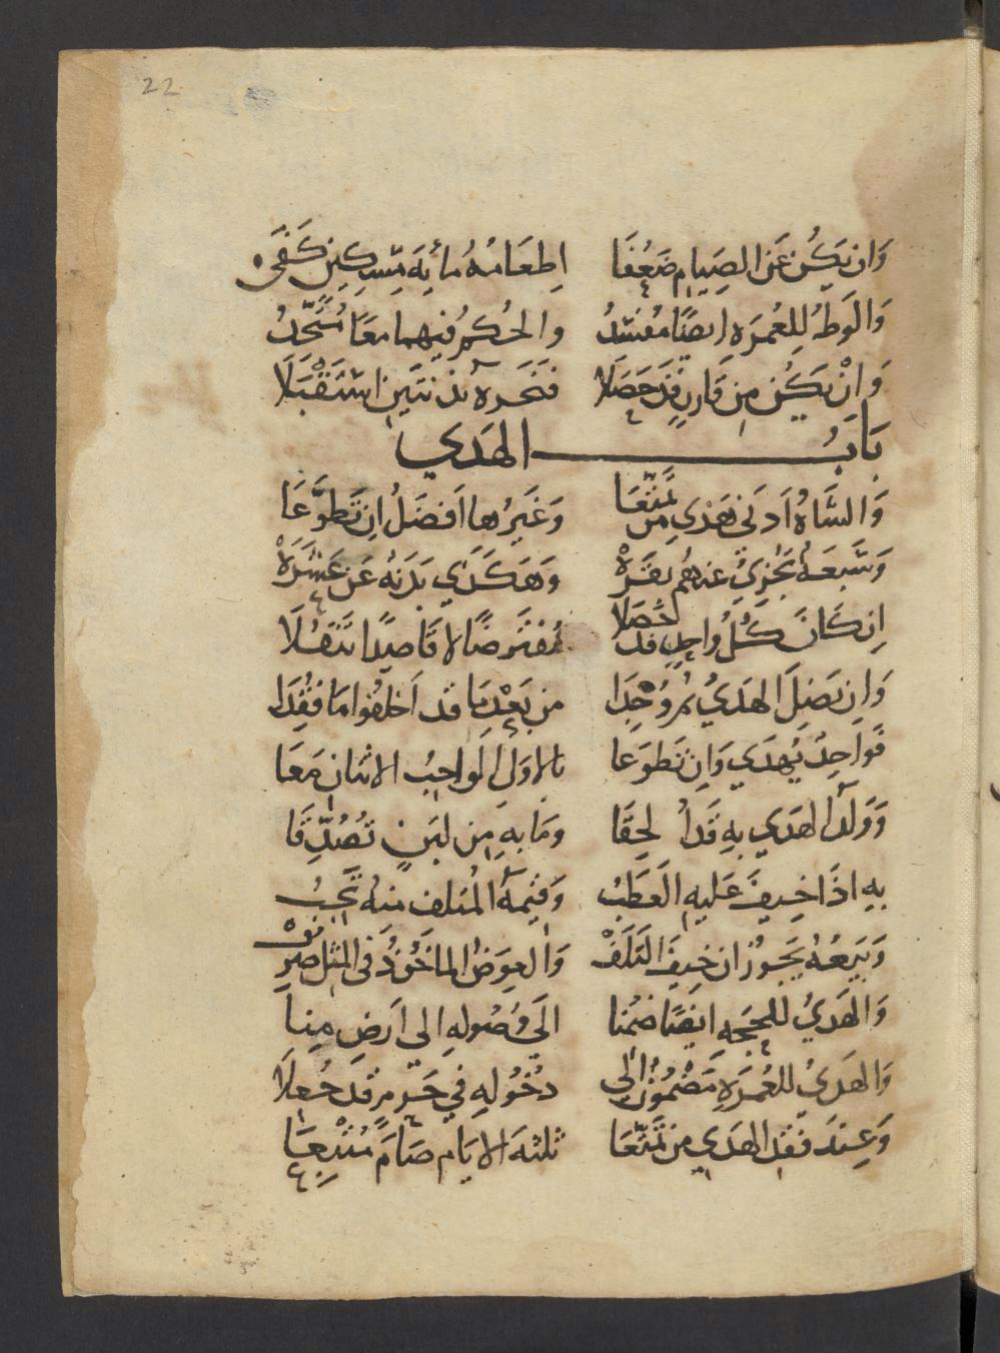 22
وَان يَكُن عَن الصِيَامِ ضَعُفَا اِطعَامُهُ مأيَة مِّسِكِين كَفَى
وَالوَطؤُ لِلعُمرَه ايضًا مُفسدُ والحُكمُ فيهما مَعًا مُتَّحِدُ
وَانْ يَكُن مِن قَارِنٍ قَد حَصَلَا فَنَحرهُ بَدَنتَينِ استَقْبَلَا
بَابُ الهَدي
وَالشَاةُ اَدنَى هَديِ مَن تَمَتَّعَا وَغَيرُها اَفضَلُ اِن تَطَوَّعَا
وَسَبعَهٌ تُجزِيْ عندهُم بقَرَهْ وَهَكَذَي بَدَنهُ عَن عَشَرَهْ
اِن كَانَ كُلُ واحِدٍ قد حَصَلا مُفتَرضًا لا قَاصِدًا تَنَفُلَا
وَاِن يَضِلَ الهَديُ ثُم وُجِدَا مِن بَعْدِ مَا قد اَخلفُوا مَا فُقِدَا
فَواحِدٌ يُهدَي وَاِن تَطَوَعا بالاوَلِ الوَاجِبُ الاثنانِ مَعَا
وَوَلَدُ الهَدي بهِ قَد لحِقَا وَمَا بهِ مِن لبَنٍ تُصُدِّقَا
بهِ اذَا خِيفَ عَليهِ العَطَبُ وَقيمَةُ المُتلَفِ مِنهُ تَجِبُ
وَبَيعُهُ يَجُوزُ ان خِيفَ التَلَفْ وَالعِوَضُ المَاخُوذُ في المثلِ صُرِفْ
وَالهَديُ للحِجَهِ ايضًا ضُمنا الَى وُصُولهِ الى اَرضِ مِنا
وَالهَديُ للعُمرَهِ مَضمُونٌ الى دُخُولهِ في حَرمٍ قَد جُعلَا
وَعِندَ فَقْدِ الهَديِ مَن تَمَتَّعَا ثلثهَ الايَام صَامَ مُتْبِعَا